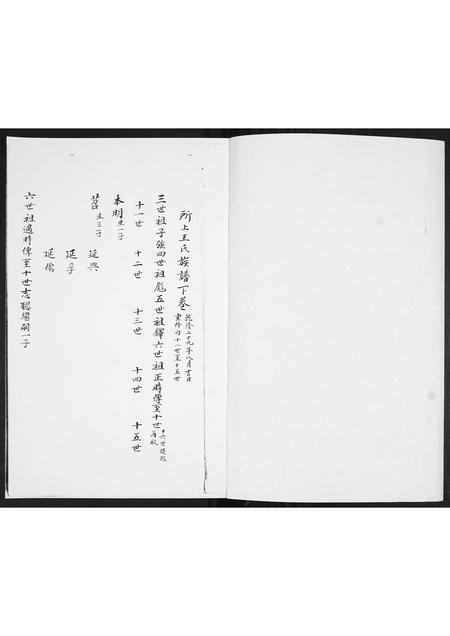 所上王氏族譜下卷
乾隆二十九年八月吉日
重修自十一世至十五世
三世祖子強四世祖彪五世祖鐸六世祖正時傳至十世
十六世提起
十一世 十二世 十三世 十四世 十五世
本明生一子
苔生三子 延興
延孚
延儒
六世祖遇時傳至十世志聰繼嗣一子